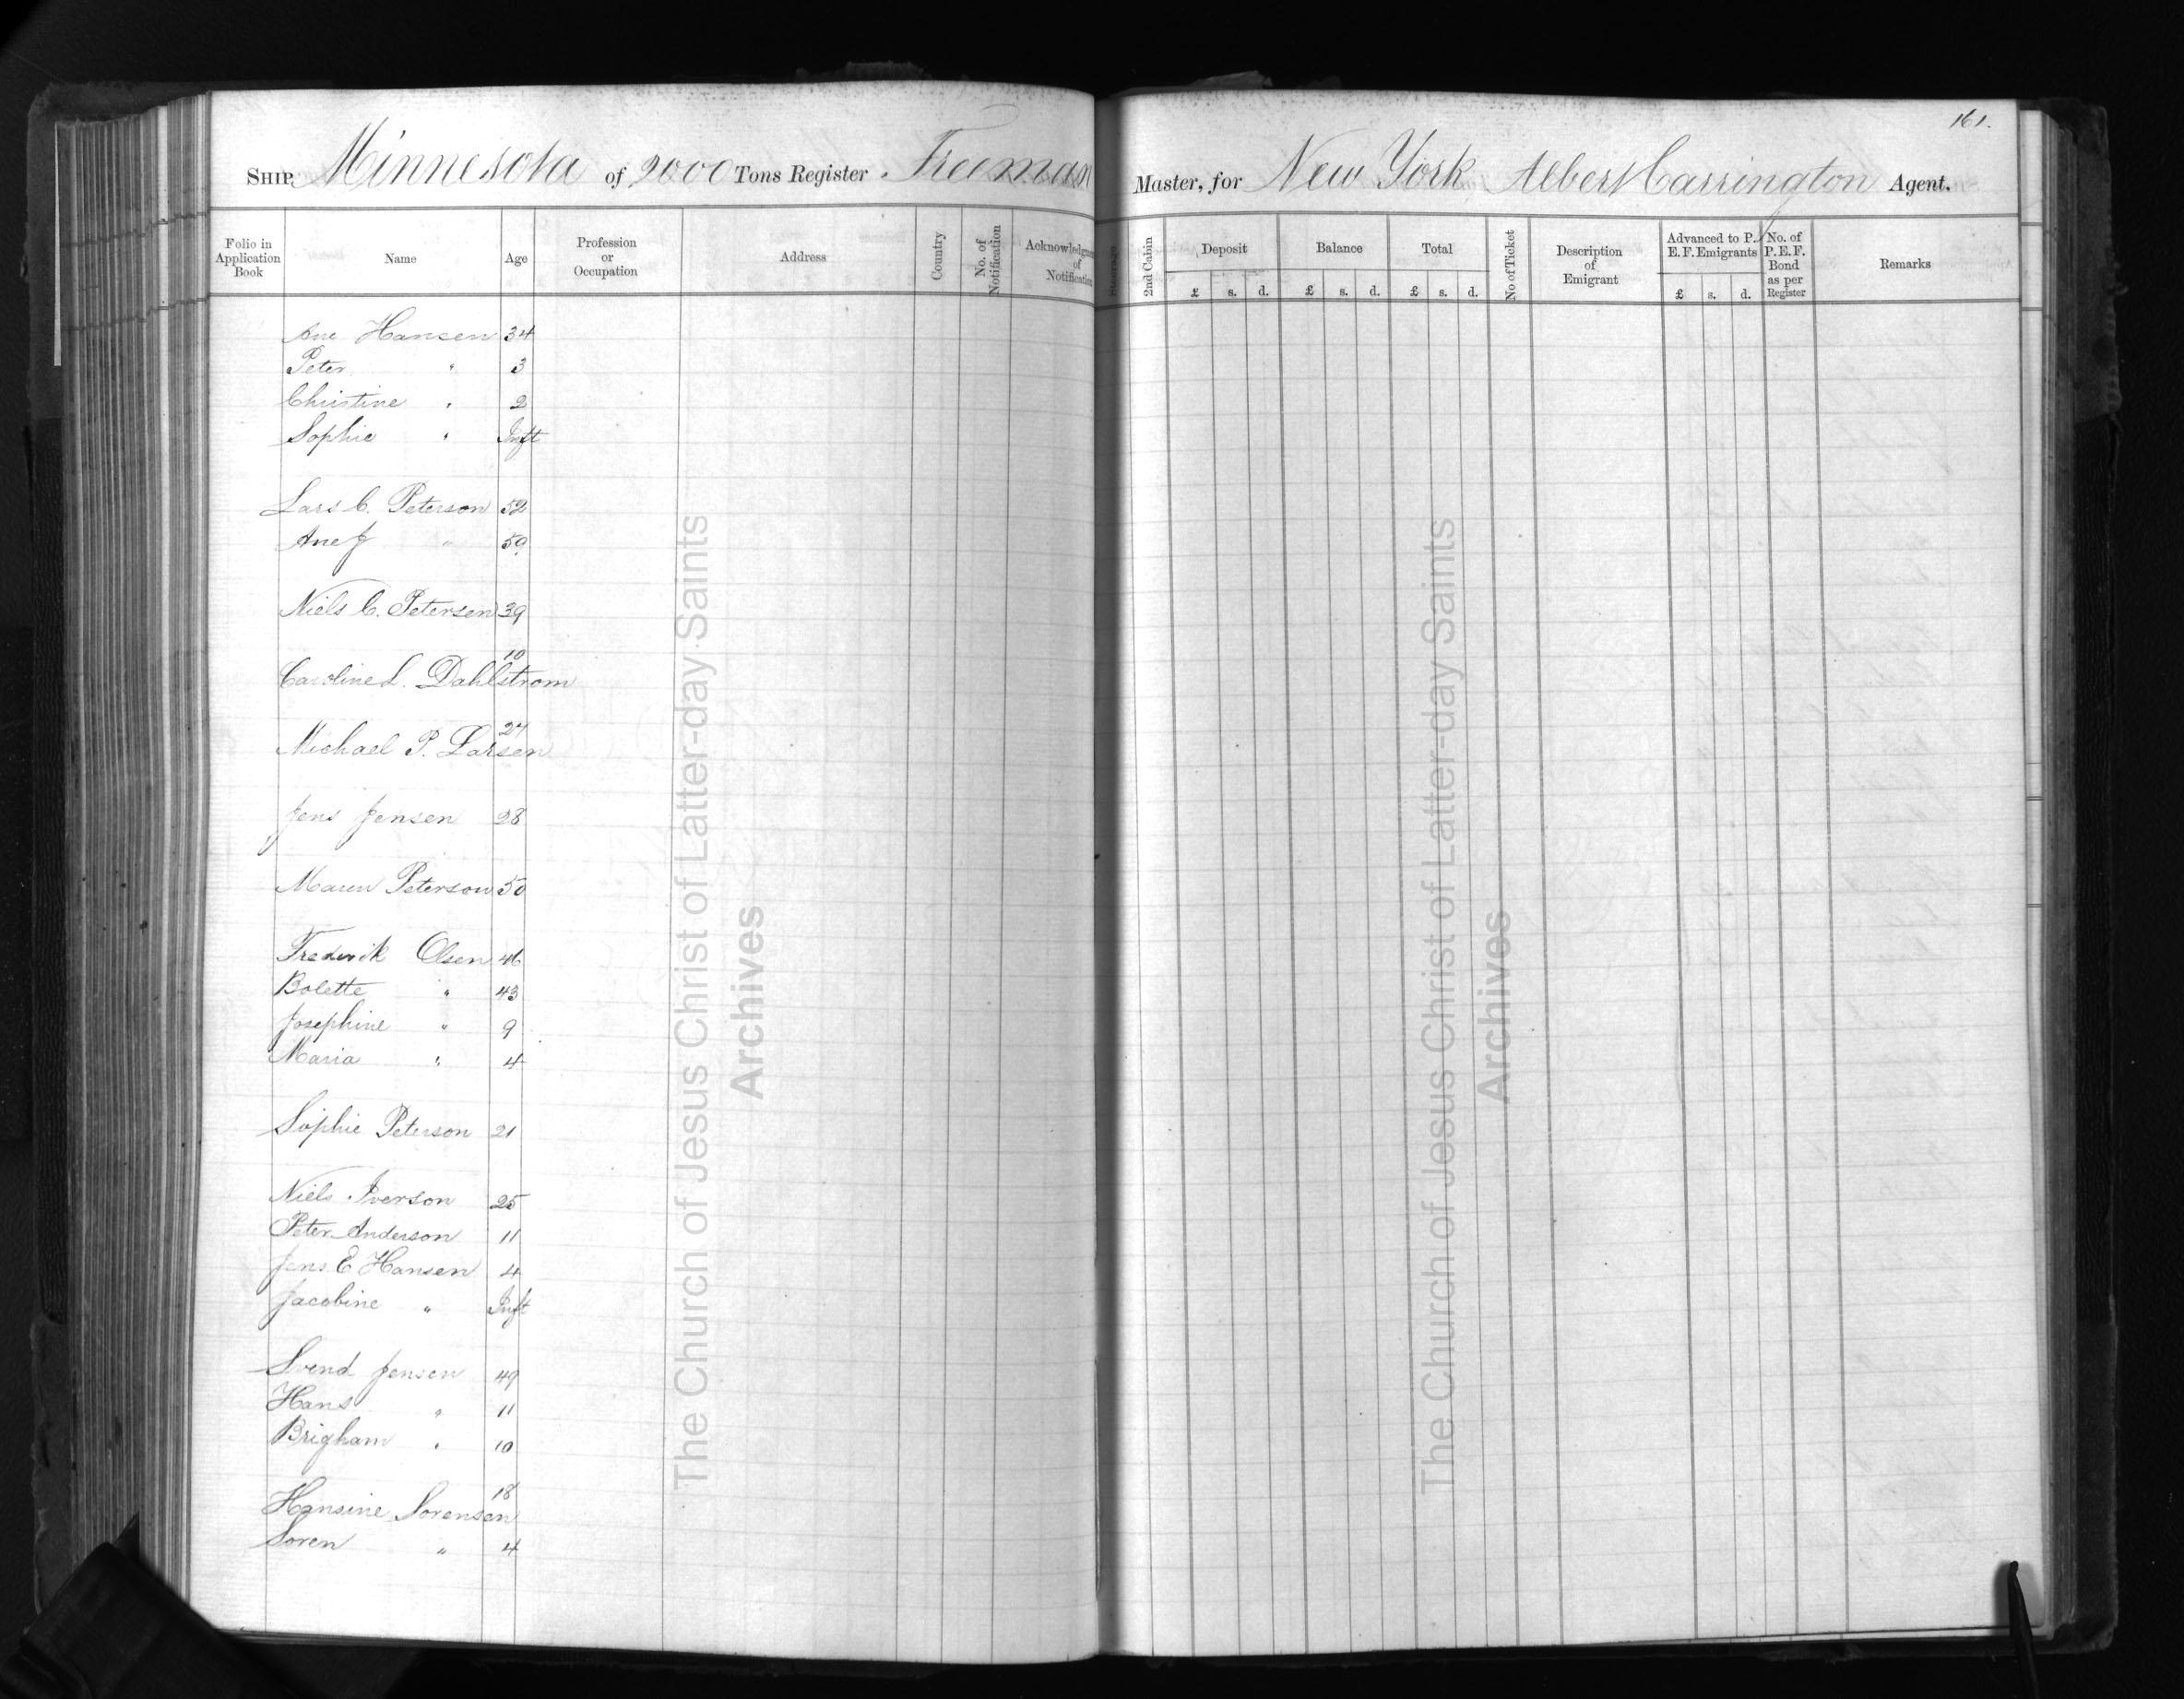 161.
SHIP Minnesota of 2000 Tons Register Freeman Master, for New York Albert Carrington Agent.
Folio in Application Book Name Age Profession or Occupation Address Country No. of Notification Acknowledgment of Notification Steerage 2nd Cabin Deposit £ s. d. Balance £ s. d. Total £ s. d. No of Ticket Description of Emigrant Advanced to P. E. F. Emigrants £ s. d. No. of P. E. F. Bond as per Register Remarks
Ane Hansen 34
Peter " 3
Christine " 2
Sophie " Inft
Lars C. Peterson 52
Ane J " 59
Niels C. Petersen 39
Caroline L. Dahlstrom 10
Michael P. Larsen 27
Jens Jensen 28
Maren Peterson 50
Frederik Olsen 46
Bolette " 43
Josephine " 9
Maria " 4
Sophie Peterson 21
Niels Iverson 25
Peter Anderson 11
Jens E Hansen 4
Jacobine " Inft
Svend Jensen 49
Hans " 11
Brigham " 10
Hansine Sorensen 18
Soren " 4
The Church of Jesus Christ of Latter-day Saints
Archives
The Church of Jesus Christ of Latter-day Saints
Archives